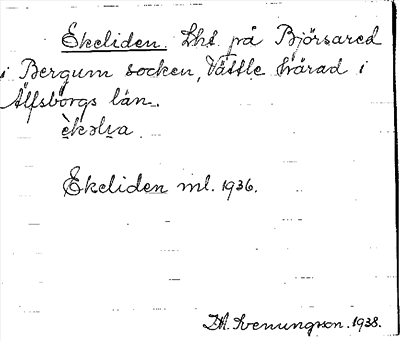 Ekeliden. Lht på Björsared
i Bergum socken, Vättle härad i
Älfsborgs län.
Ekeliden ml. 1936.
Svenungsson. 1938.